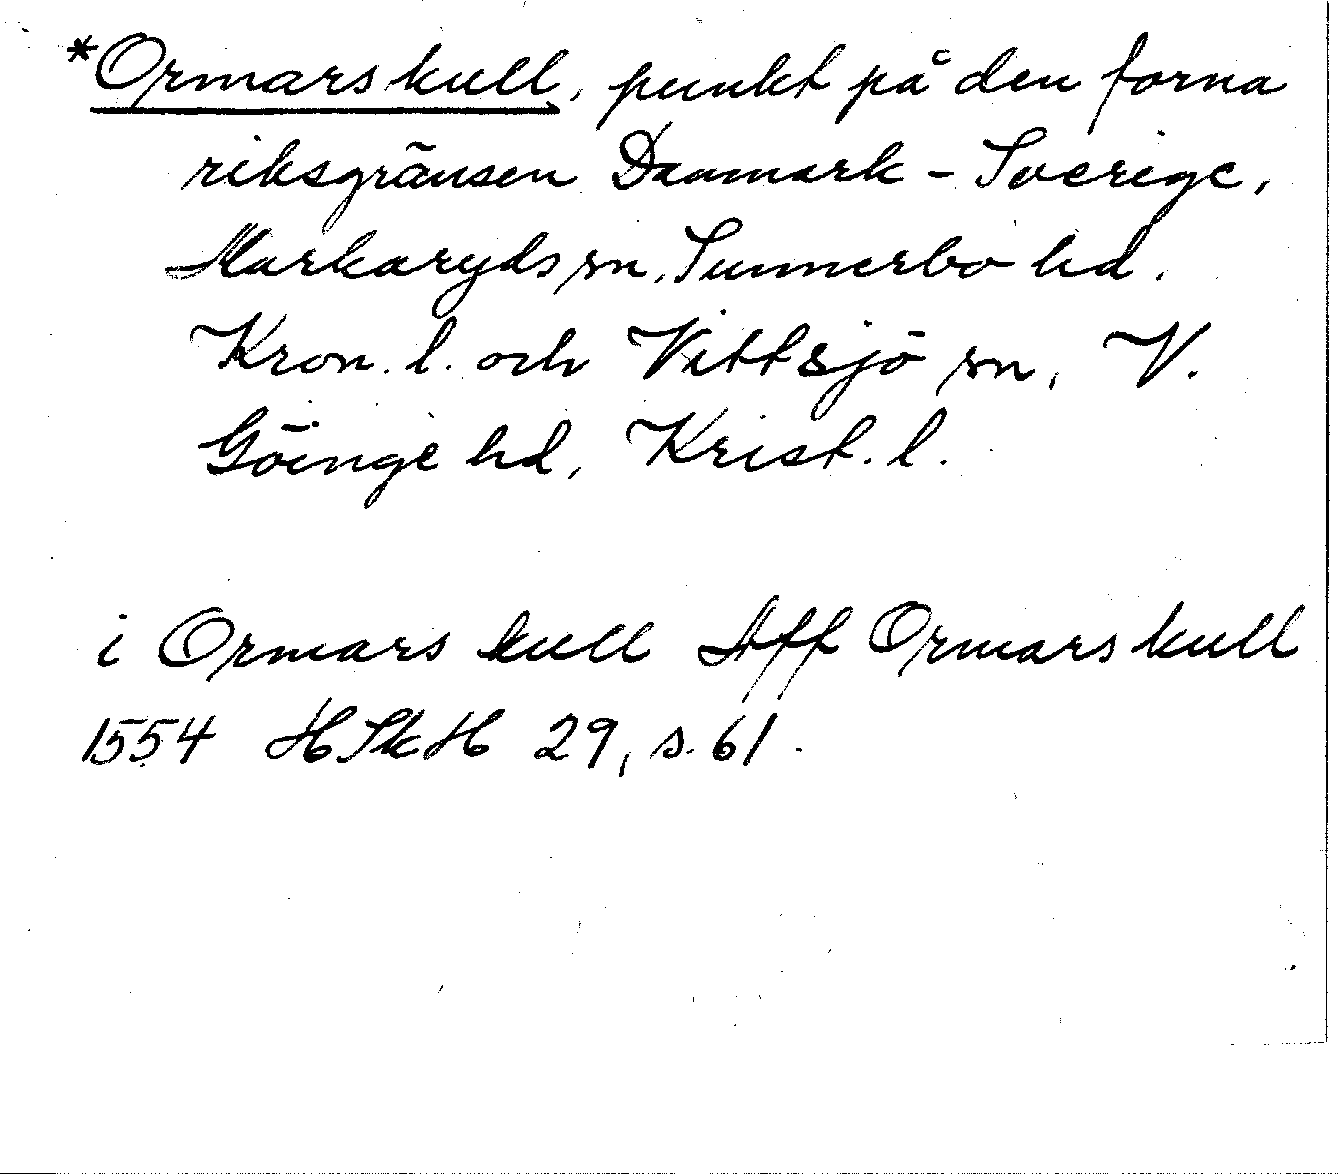 *Ormarskull, punkt på den forna
riksgränsen Danmark - Sverige,
Markaryds sn, Sunnerbo hd.
Kron. l. och Vittsjö sn, V.
Göinge hd, Krist. l.
i Ormars kull Aff Ormarskull
1554 HSkH 29, s. 61.